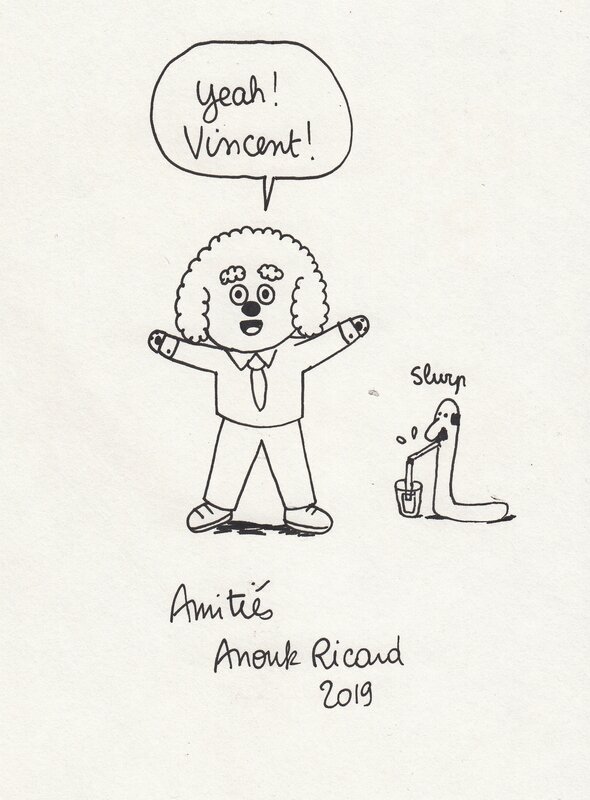 Yeah!
Vincent!
Slurp
Amitiés
Anouk Ricard
2019